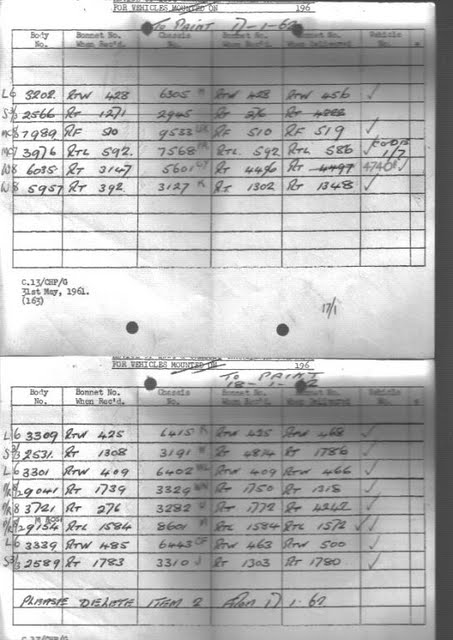 FOR VEHICLES MOUNTED ON 196
TO PAINT 17-1-62
Body No. Bonnet No. When Rec'd. Chassis No. Bonnet No. Bonnet No. When Delivered Vehicle No.
L6 5202 RTW 428 6305 RTW 428 RTW 456 ✓
S3/3 2566 RT 1271 2945 RT 276 RT
8 7989 RF 510 9533 RF 510 RF 519 ✓
7 3976 RTL 592 7568 RTL 592 RTL 586 ✓
W8 6035 RT 3147 5601 RT 4496 RT 4497 4740 ✓
W8 5957 RT 392 3127 RT 1302 RT 1348 ✓
C.13/CHP/G
31st May, 1961.
(163)
17/1
FOR VEHICLES MOUNTED ON 196
TO PAINT
18-1-62
Body No. Bonnet No. When Rec'd. Chassis No. Bonnet No. Bonnet No. When Delivered Vehicle No.
L6 3309 RTW 425 6415 RTW 425 RTW 468 ✓
S3/3 2531 RT 1308 3191 RT 4814 RT 1786 ✓
L6 3301 RTW 409 6402 RTW 409 RTW 466 ✓
29041 RT 1739 3329 RT 1750 RT 1318 ✓
8 3721 RT 276 3282 RT 1772 RT 4242 ✓
29754 RTL 1584 8601 RTL 1584 RTL 1572 ✓
L6 3339 RTW 485 6443 RTW 463 RTW 500 ✓
S3/3 2589 RT 1783 3310 J RT 1303 RT 1780 ✓
PLEASE DELATE ITEM 2 FROM 17-1-62
C.13/CHP/G